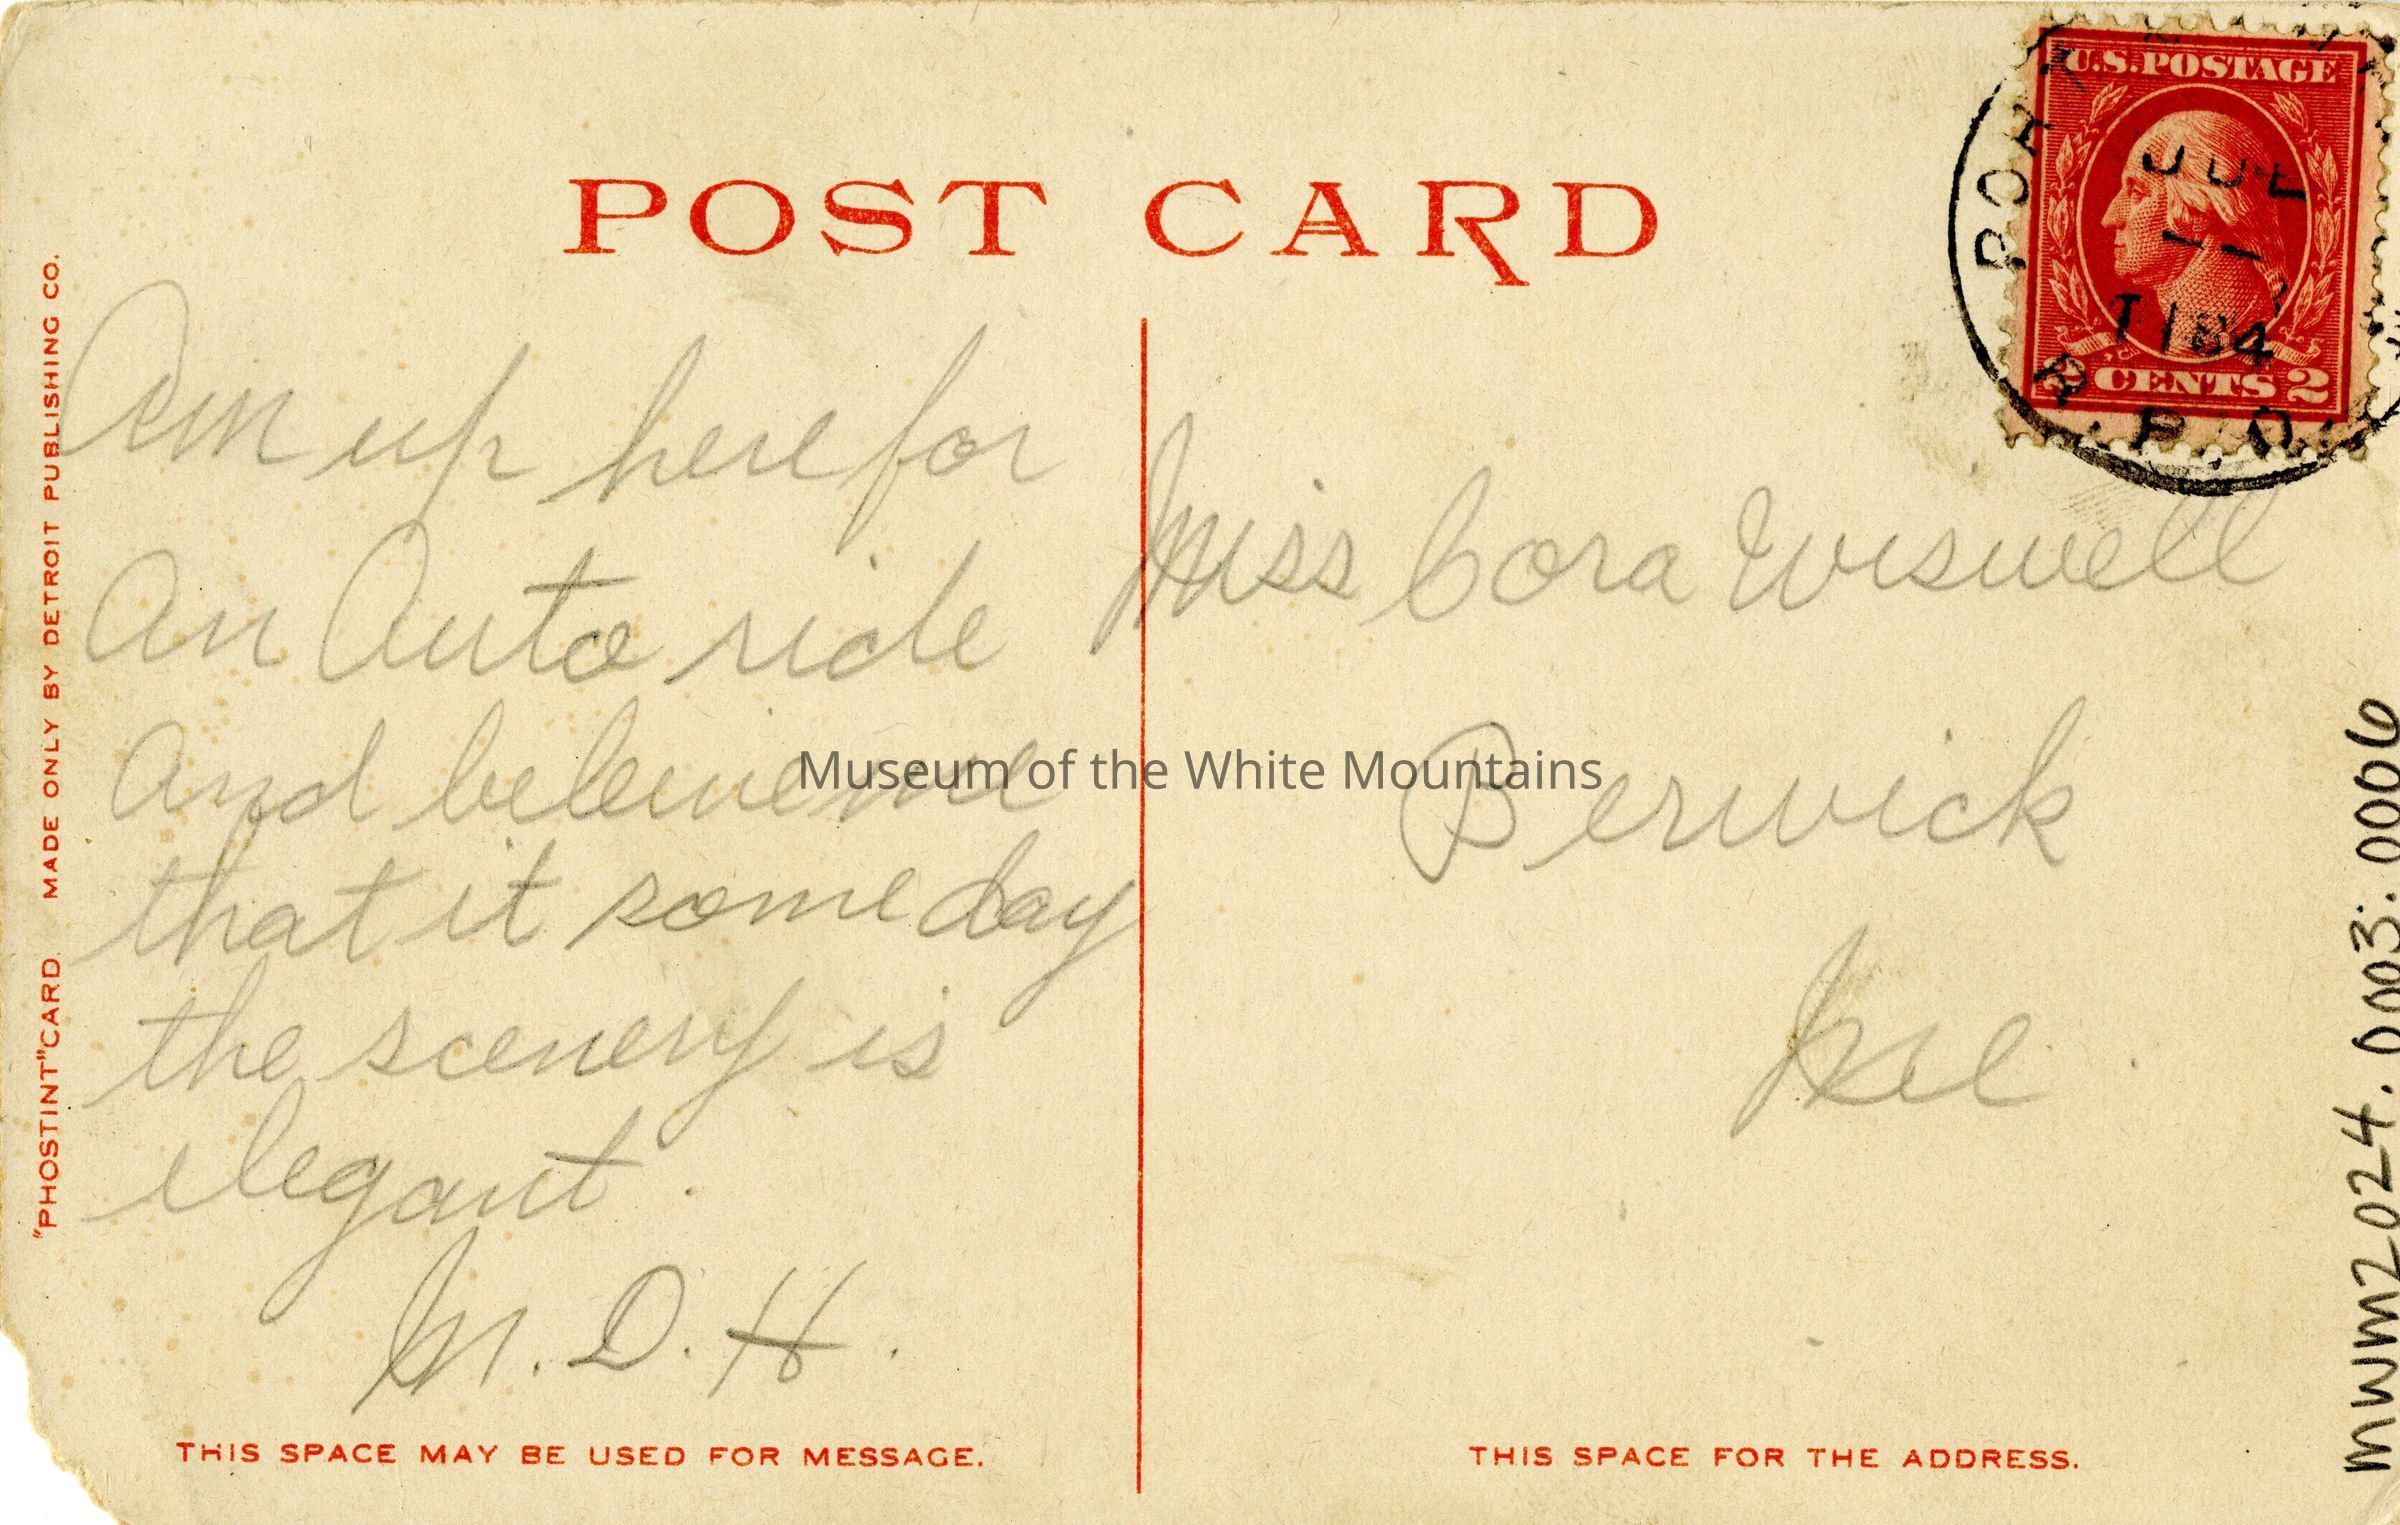 POST CARD
"PHOSTINT" CARD. MADE ONLY BY DETROIT PUBLISHING CO.
Am up here for
An Auto ride
And beleive me
that it some day
the scenery is
elegant.
M. D. H.
THIS SPACE MAY BE USED FOR MESSAGE.
U.S. POSTAGE
2 CENTS 2
R.P.O.
Miss Cora Wiswell
Berwick
Me
THIS SPACE FOR THE ADDRESS.
Museum of the White Mountains
MWM2024.0003.0006